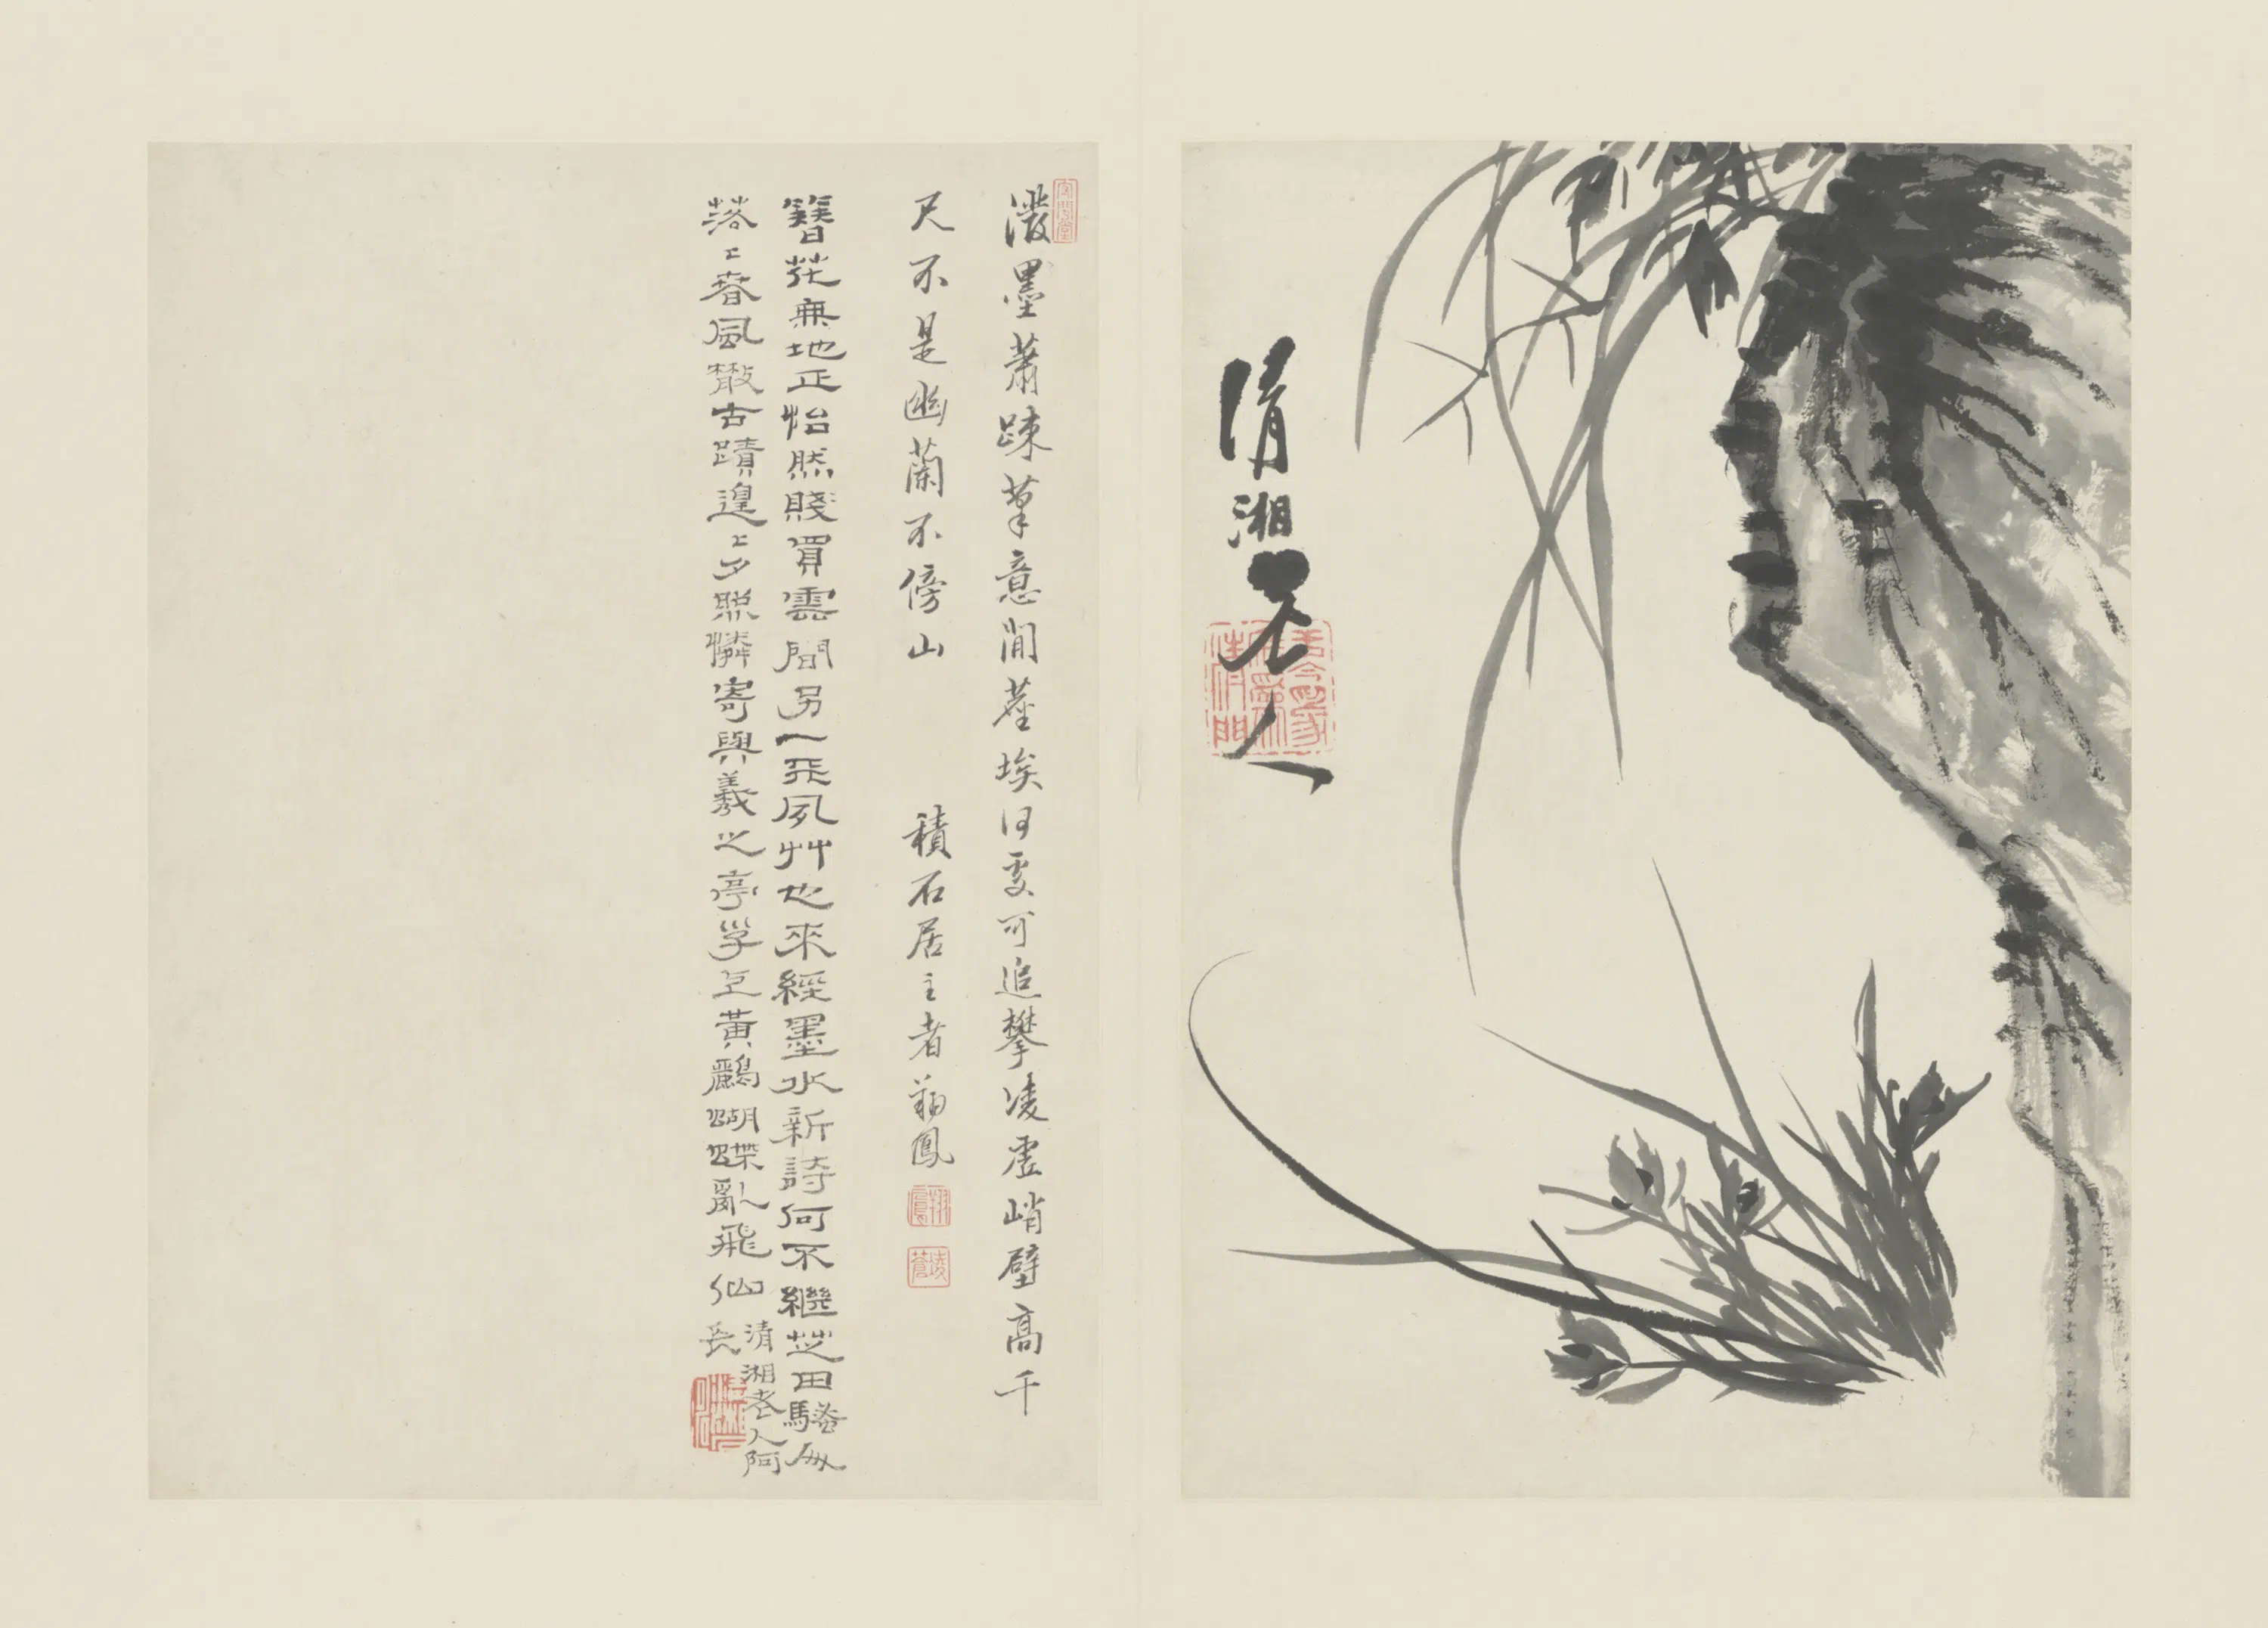 清湘老人
潑墨蕭疎筆意閒塵埃何處可追攀凌虛峭壁高千
尺不是幽蘭不傍山
積石居主者翔鳳
翔鳳
簪花無地正怡然賤買雲間另一天夙艸也來經墨水新詩何不繼芝田騷奴
落〻春風散古蹟遑〻夕照憐寄興羲之亭子上黃鸝蝴蝶亂飛仙
清湘老人阿
長